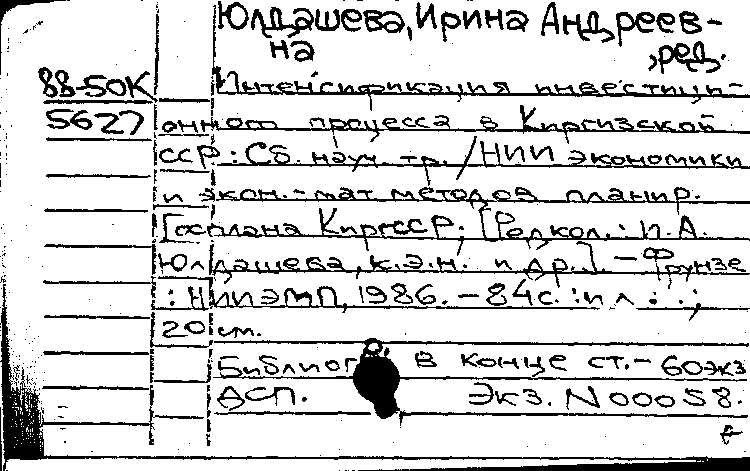 Юлдашева, Ирина Андреев-
на
, ред.
88-50К Интенсификация инвестици-
5627 онного процесса в Киргизской
ССР : Сб. науч. тр. / НИИ экономики
и экон.-мат. методов планир.
Госплана КиргССР; [Редкол.: И.А.
Юлдашева, к.э.н. и др.]. - Фрунзе
: НИИЭМП, 1986. - 84 с. : ил. ;
20 см.
Библиогр. в конце ст. - 60 экз
ДСП. Экз. N 00058.